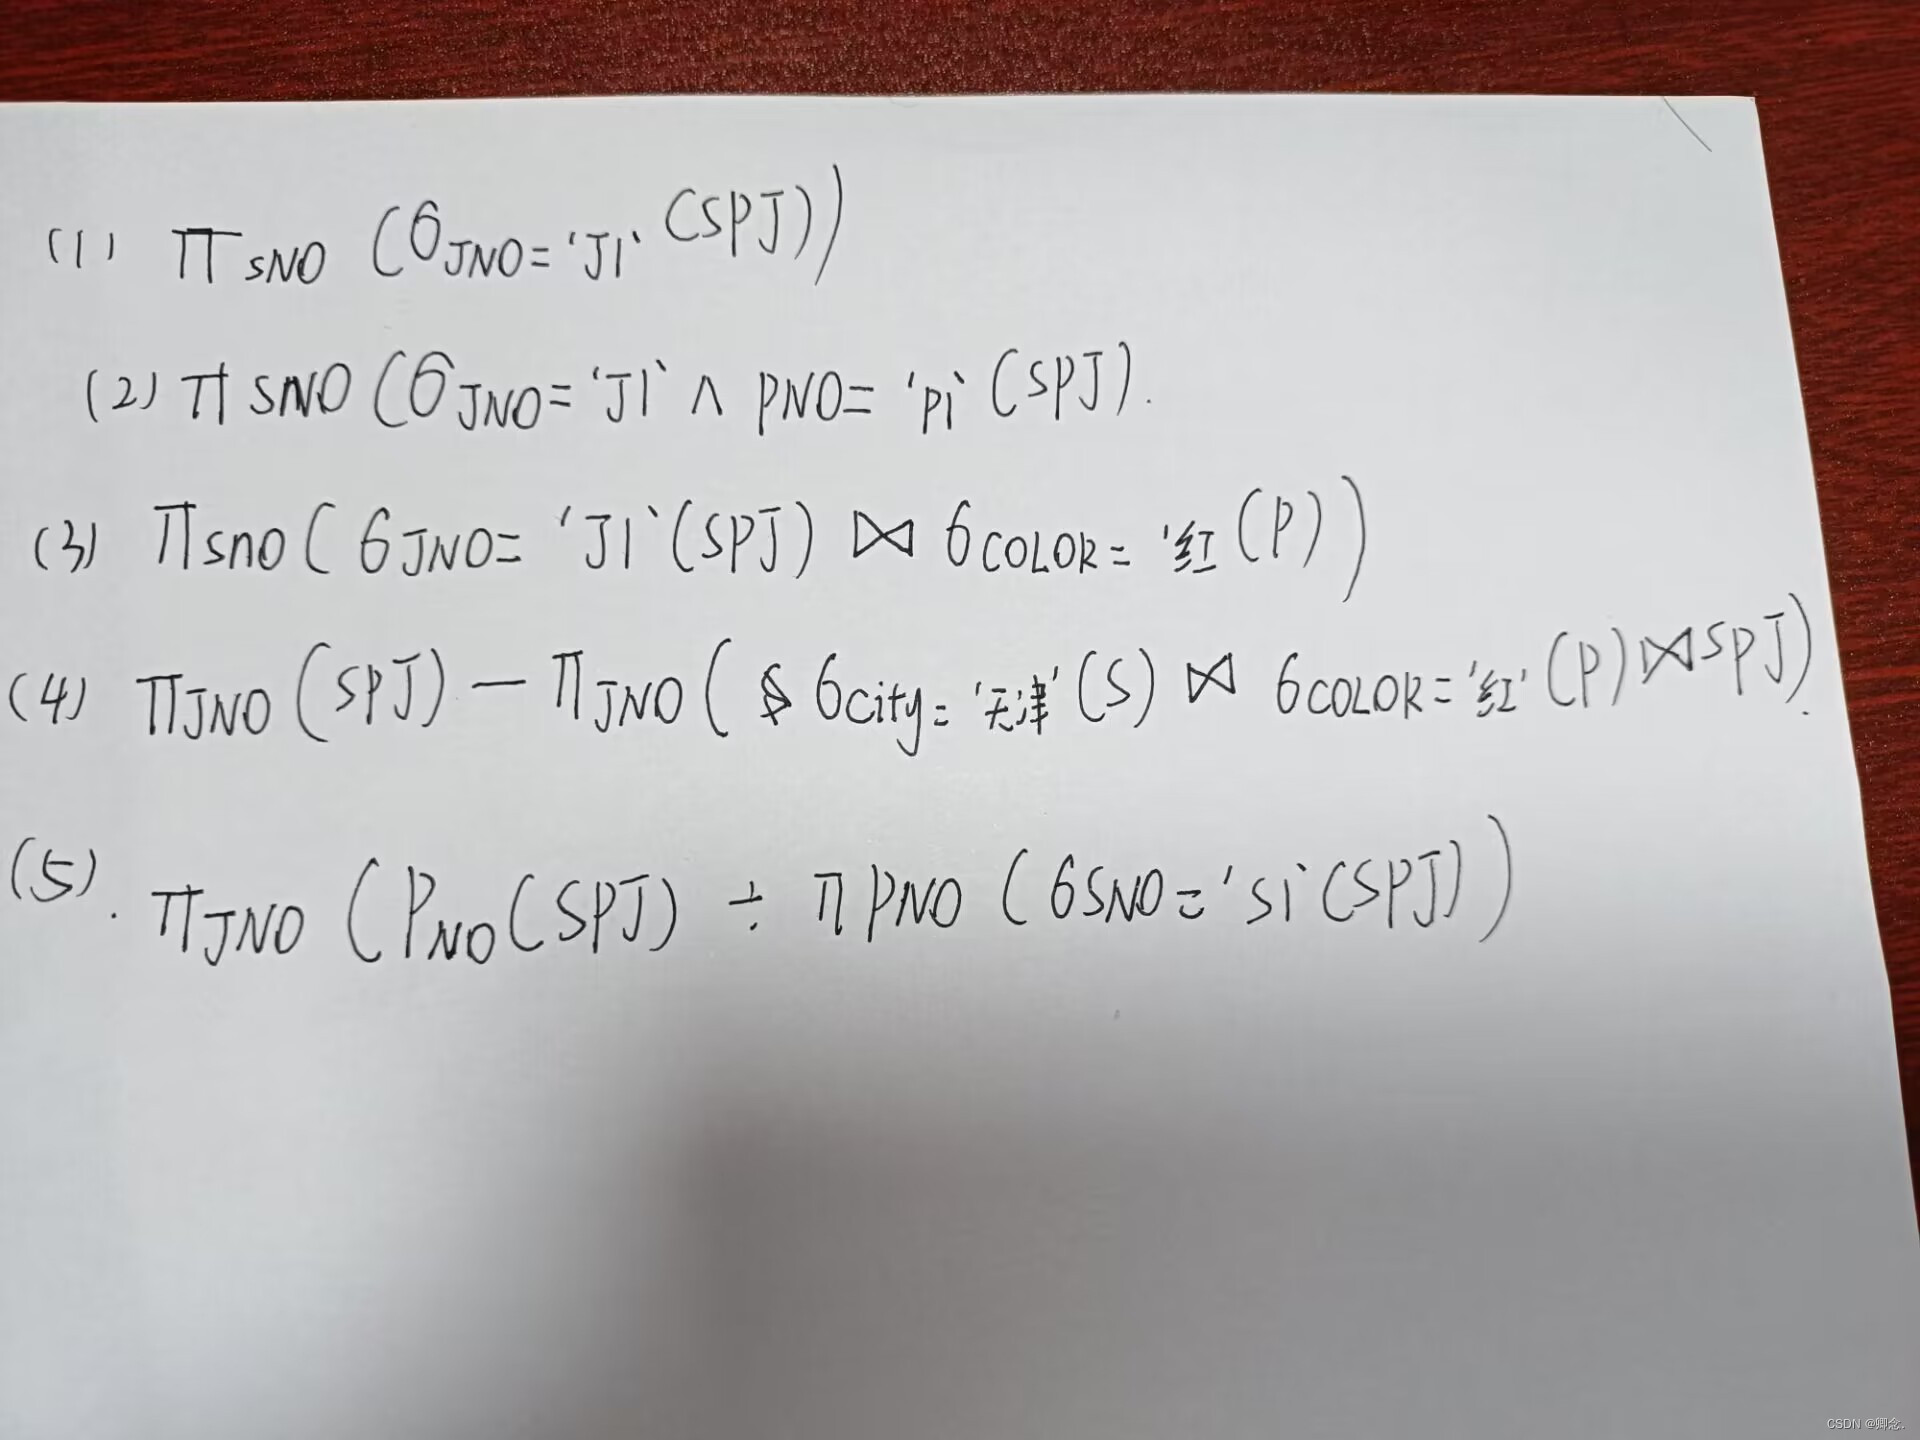 (1) π SNO (σ JNO= 'J1' (SPJ))
(2) π SNO (σ JNO= 'J1' ∧ PNO= 'P1' (SPJ).
(3) π SNO (σ JNO= 'J1' (SPJ) ⋈ σ COLOR= '红 (P))
(4) π JNO (SPJ) — π JNO ( σ City= '天津' (S) ⋈ σ COLOR= '红' (P) ⋈ SPJ).
(5). π JNO (PNO (SPJ) ÷ π PNO (σ SNO= 'S1' (SPJ))
CSDN @卿念.